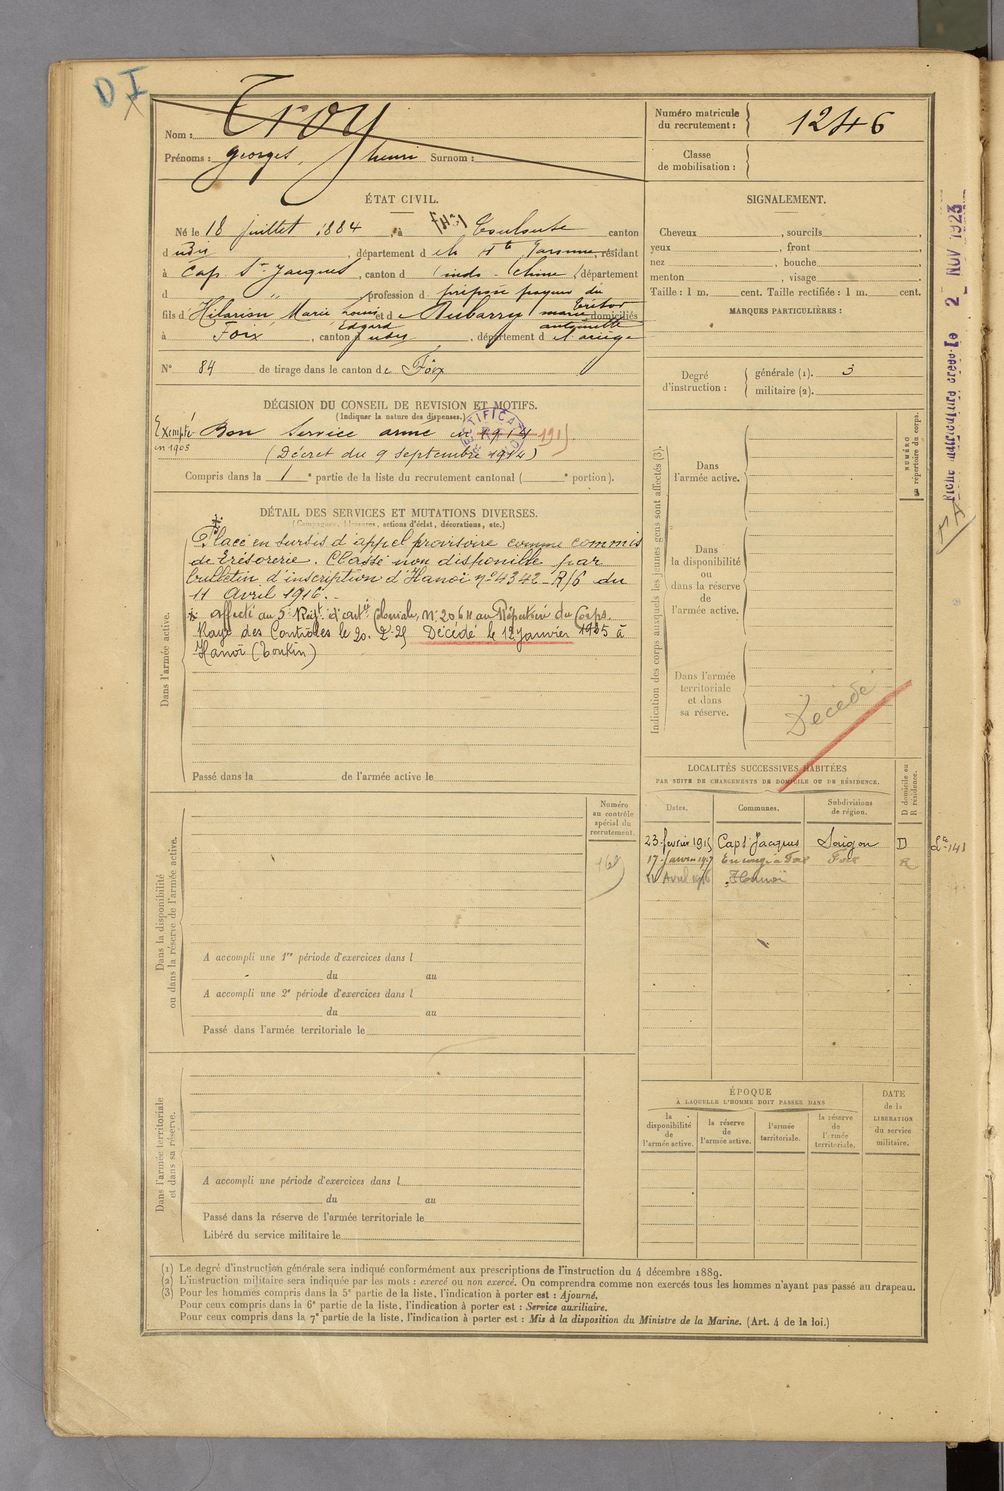 D I
Nom : Troy
Prénoms : Georges, Henri Surnom :
Numéro matricule du recrutement : 1246
Classe de mobilisation :
ÉTAT CIVIL.
Né le 18 juillet 1884, à Toulouse canton
dudit, département de la Hte Garonne, résidant
à Cap St Jacques, canton d indo-Chine, département
d " profession d préposé payeur du
trésor
fils d'Hilarion Marie Louis et d Aubarry marie domiciliés
Edgard antoinette
à Foix, canton dudit, département d l'ariège
N° 84 de tirage dans le canton de Foix
SIGNALEMENT.
Cheveux , sourcils ,
yeux , front ,
nez , bouche ,
menton , visage
Taille : 1 m. cent. Taille rectifiée : 1 m. cent.
MARQUES PARTICULIÈRES :
Degré d'instruction : générale (1). 3
militaire (2).
DÉCISION DU CONSEIL DE REVISION ET MOTIFS.
(Indiquer la nature des dispenses.)
Exempté en 1905
Bon service armé en 1914 1915.
(Décret du 9 septembre 1914)
Compris dans la 1 e partie de la liste du recrutement cantonal ( e portion).
DÉTAIL DES SERVICES ET MUTATIONS DIVERSES.
(Campagnes, blessures, actions d'éclat, décorations, etc.)
Dans l'armée active.
Placé en sursis d'appel provisoire comme commis
de Trésorerie. Classé non disponible par
bulletin d'inscription d'Hanoï n° 4342-R/6 du
11 Avril 1916.-
affecté au 5e Régt d'artie Coloniale, N° 2064 au Répertoire du Corps.
Rayé des Contrôles le 20.2.25 Décédé le 12 Janvier 1925 à
Hanoï (Tonkin)
Passé dans la de l'armée active le
Indication des corps auxquels les jeunes gens sont affectés (3).
NUMÉRO au répertoire du corps.
Dans
l'armée active.
Dans
la disponibilité
ou
dans la réserve
de
l'armée active.
Dans l'armée
territoriale
et dans
sa réserve.
Décédé
LOCALITÉS SUCCESSIVES HABITÉES
PAR SUITE DE CHANGEMENTS DE DOMICILE OU DE RÉSIDENCE.
Dates. Communes. Subdivisions de région. D domicile ou R résidence.
23 février 1915 Cap St Jacques Saïgon D
17 Janvier 1917 En congé à Foix Foix R
Avril 1916 Hanoï
Numéro
au contrôle
spécial du
recrutement.
Dans la disponibilité
ou dans la réserve de l'armée active.
A accompli une 1re période d'exercices dans l
du au
A accompli une 2e période d'exercices dans l
du au
Passé dans l'armée territoriale le
Dans l'armée territoriale
et dans sa réserve.
A accompli une période d'exercices dans l
du au
Passé dans la réserve de l'armée territoriale le
Libéré du service militaire le
ÉPOQUE
À LAQUELLE L'HOMME DOIT PASSER DANS
la disponibilité de l'armée active.
la réserve de l'armée active.
l'armée territoriale.
la réserve de l'armée territoriale.
DATE
de la
LIBÉRATION
du service
militaire.
Fiche matriculaire créée le 2 NOV 1923
(1) Le degré d'instruction générale sera indiqué conformément aux prescriptions de l'instruction du 4 décembre 1889.
(2) L'instruction militaire sera indiquée par les mots : exercé ou non exercé. On comprendra comme non exercés tous les hommes n'ayant pas passé au drapeau.
(3) Pour les hommes compris dans la 5e partie de la liste, l'indication à porter est : Ajourné.
Pour ceux compris dans la 6e partie de la liste, l'indication à porter est : Service auxiliaire.
Pour ceux compris dans la 7e partie de la liste, l'indication à porter est : Mis à la disposition du Ministre de la Marine. (Art. 4 de la loi.)